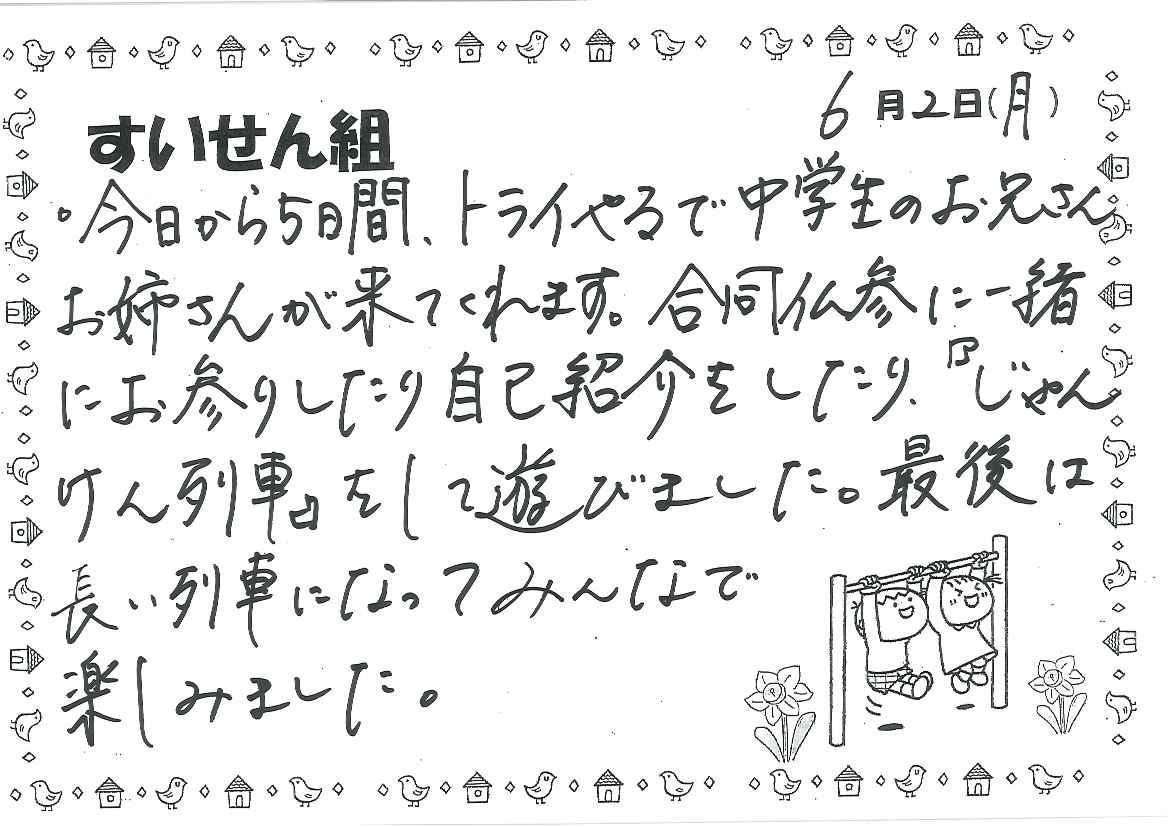 6月2日(月)
すいせん組
。今日から5日間、トライやるで中学生のお兄さん
お姉さんが来てくれます。合同仏参に一緒
にお参りしたり自己紹介をしたり、『じゃん
けん列車』をして遊びました。最後は
長い列車になってみんなで
楽しみました。